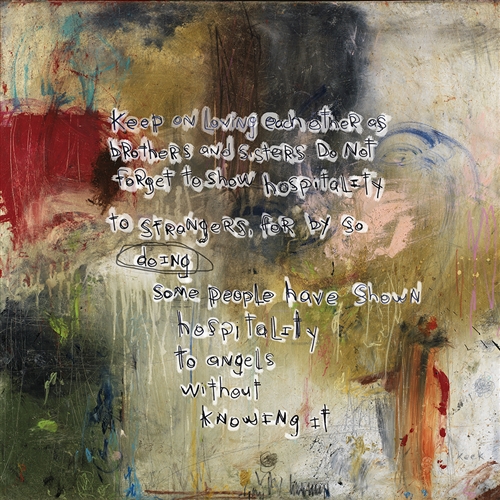 KEEP ON LOVING EACH OTHER AS
BROTHERS AND SISTERS DO NOT
FORGET TO SHOW HOSPITALITY
TO STRANGERS, FOR BY SO
doING
SOME PEOPLE HAVE SHOWN
HOSPITALITY
TO ANGELS
WITHOUT
KNOWING IT